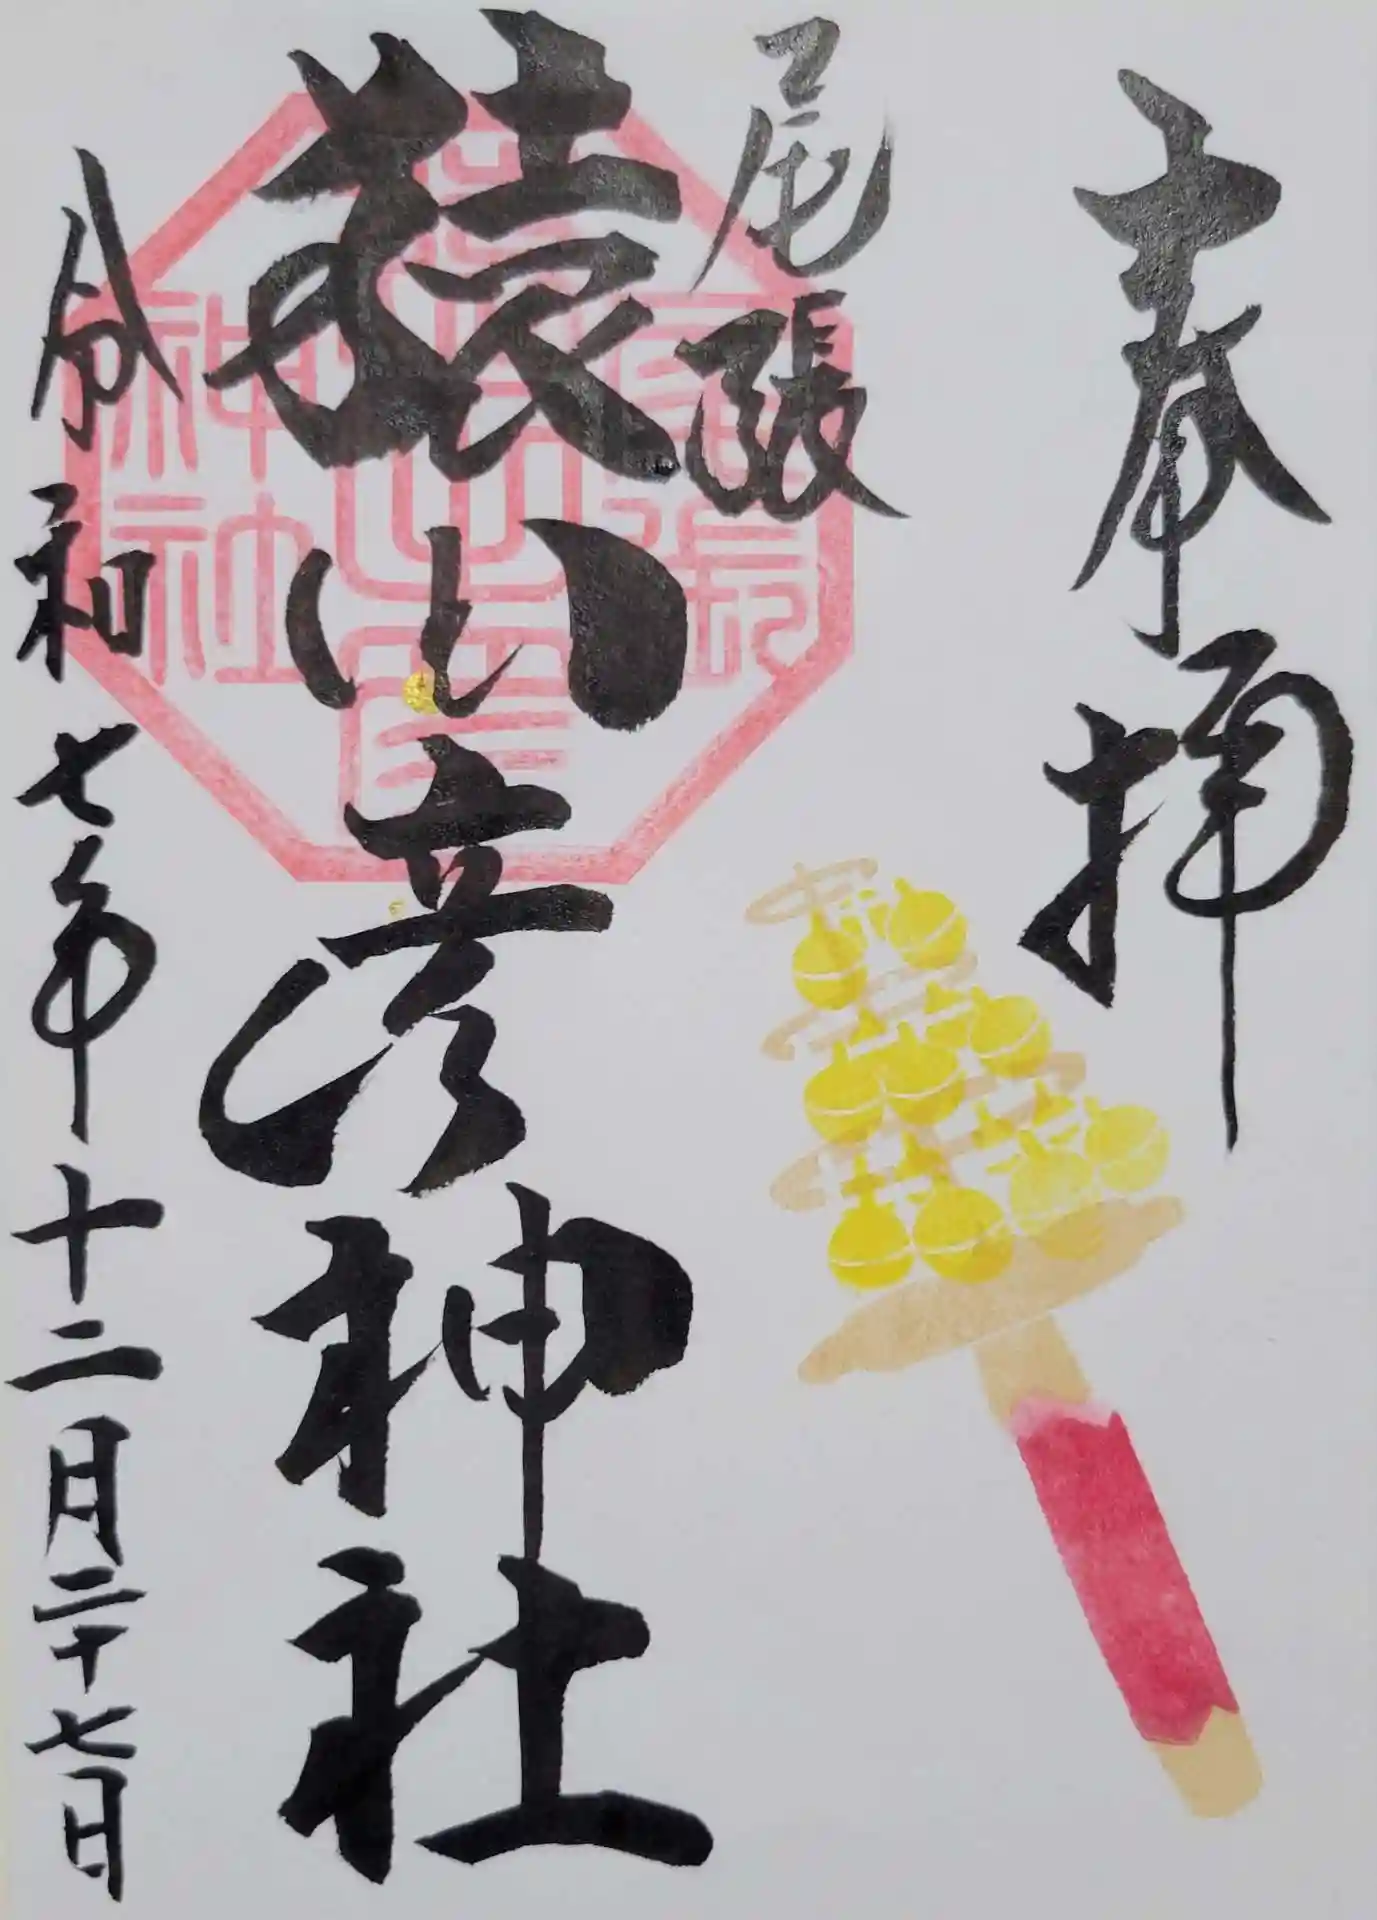 奉拝
尾張
猿田彦神社
令和七年十二月二十七日
神社